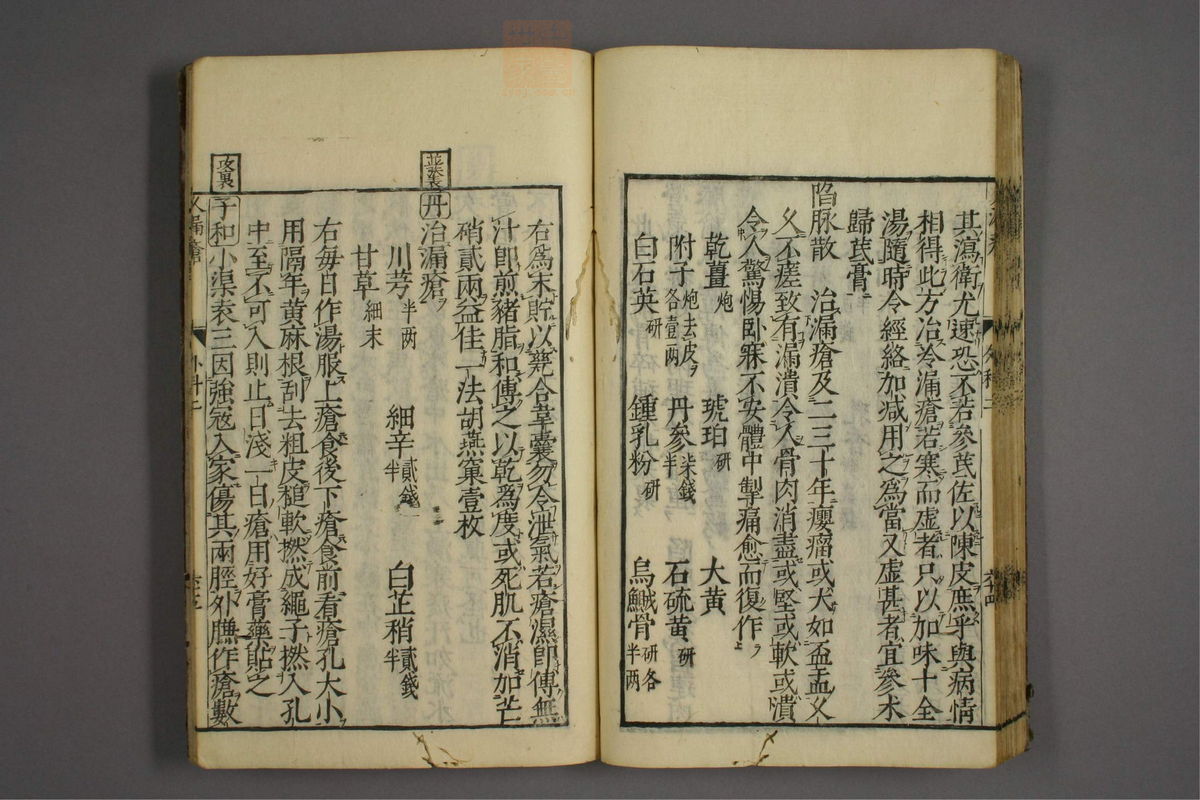 其瀉衛尤速恐不若參芪佐以陳皮庶乎與病情
相得此方冶冷漏瘡若寒而虛者只以加味十全
湯隨時令經絡加減用之爲當又虛甚者宜參朮
歸芪膏
陷脉散 治漏瘡及二三十年癭瘤或大如盃盂久
久不瘥致有漏潰令人骨肉消盡或堅或軟或潰
令人驚惕卧寐不安體中掣痛愈而復作
乾薑炮 琥珀研 大黄
附子炮去皮各壹兩 丹參柒錢半 石硫黄研
白石英研 鍾乳粉研 烏鰂骨研各半两
右爲末貯以甆合韋囊勿令泄氣若瘡濕即傅無
汁即煎豬脂和傅之以乾爲度或死肌不消加芒
硝貳兩益佳一法胡燕窠壹枚
並裝表
丹治漏瘡
川芎半两 細辛貳錢半 白芷稍貳錢半
甘草細末
右每日作湯服上瘡食後下瘡食前看瘡孔大小
用隔年黄麻根刮去粗皮槌軟撚成繩子撚入孔
中至不可入則止日淺一日瘡用好膏藥貼之
攻裏
子和小渠袁三因強寇入家傷其兩脛外臁作瘡數
漏瘡
外科二